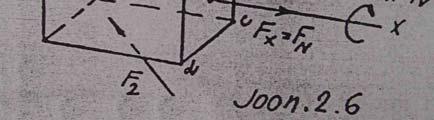 c
Fx=FN
x
F2
d
Joon. 2.6